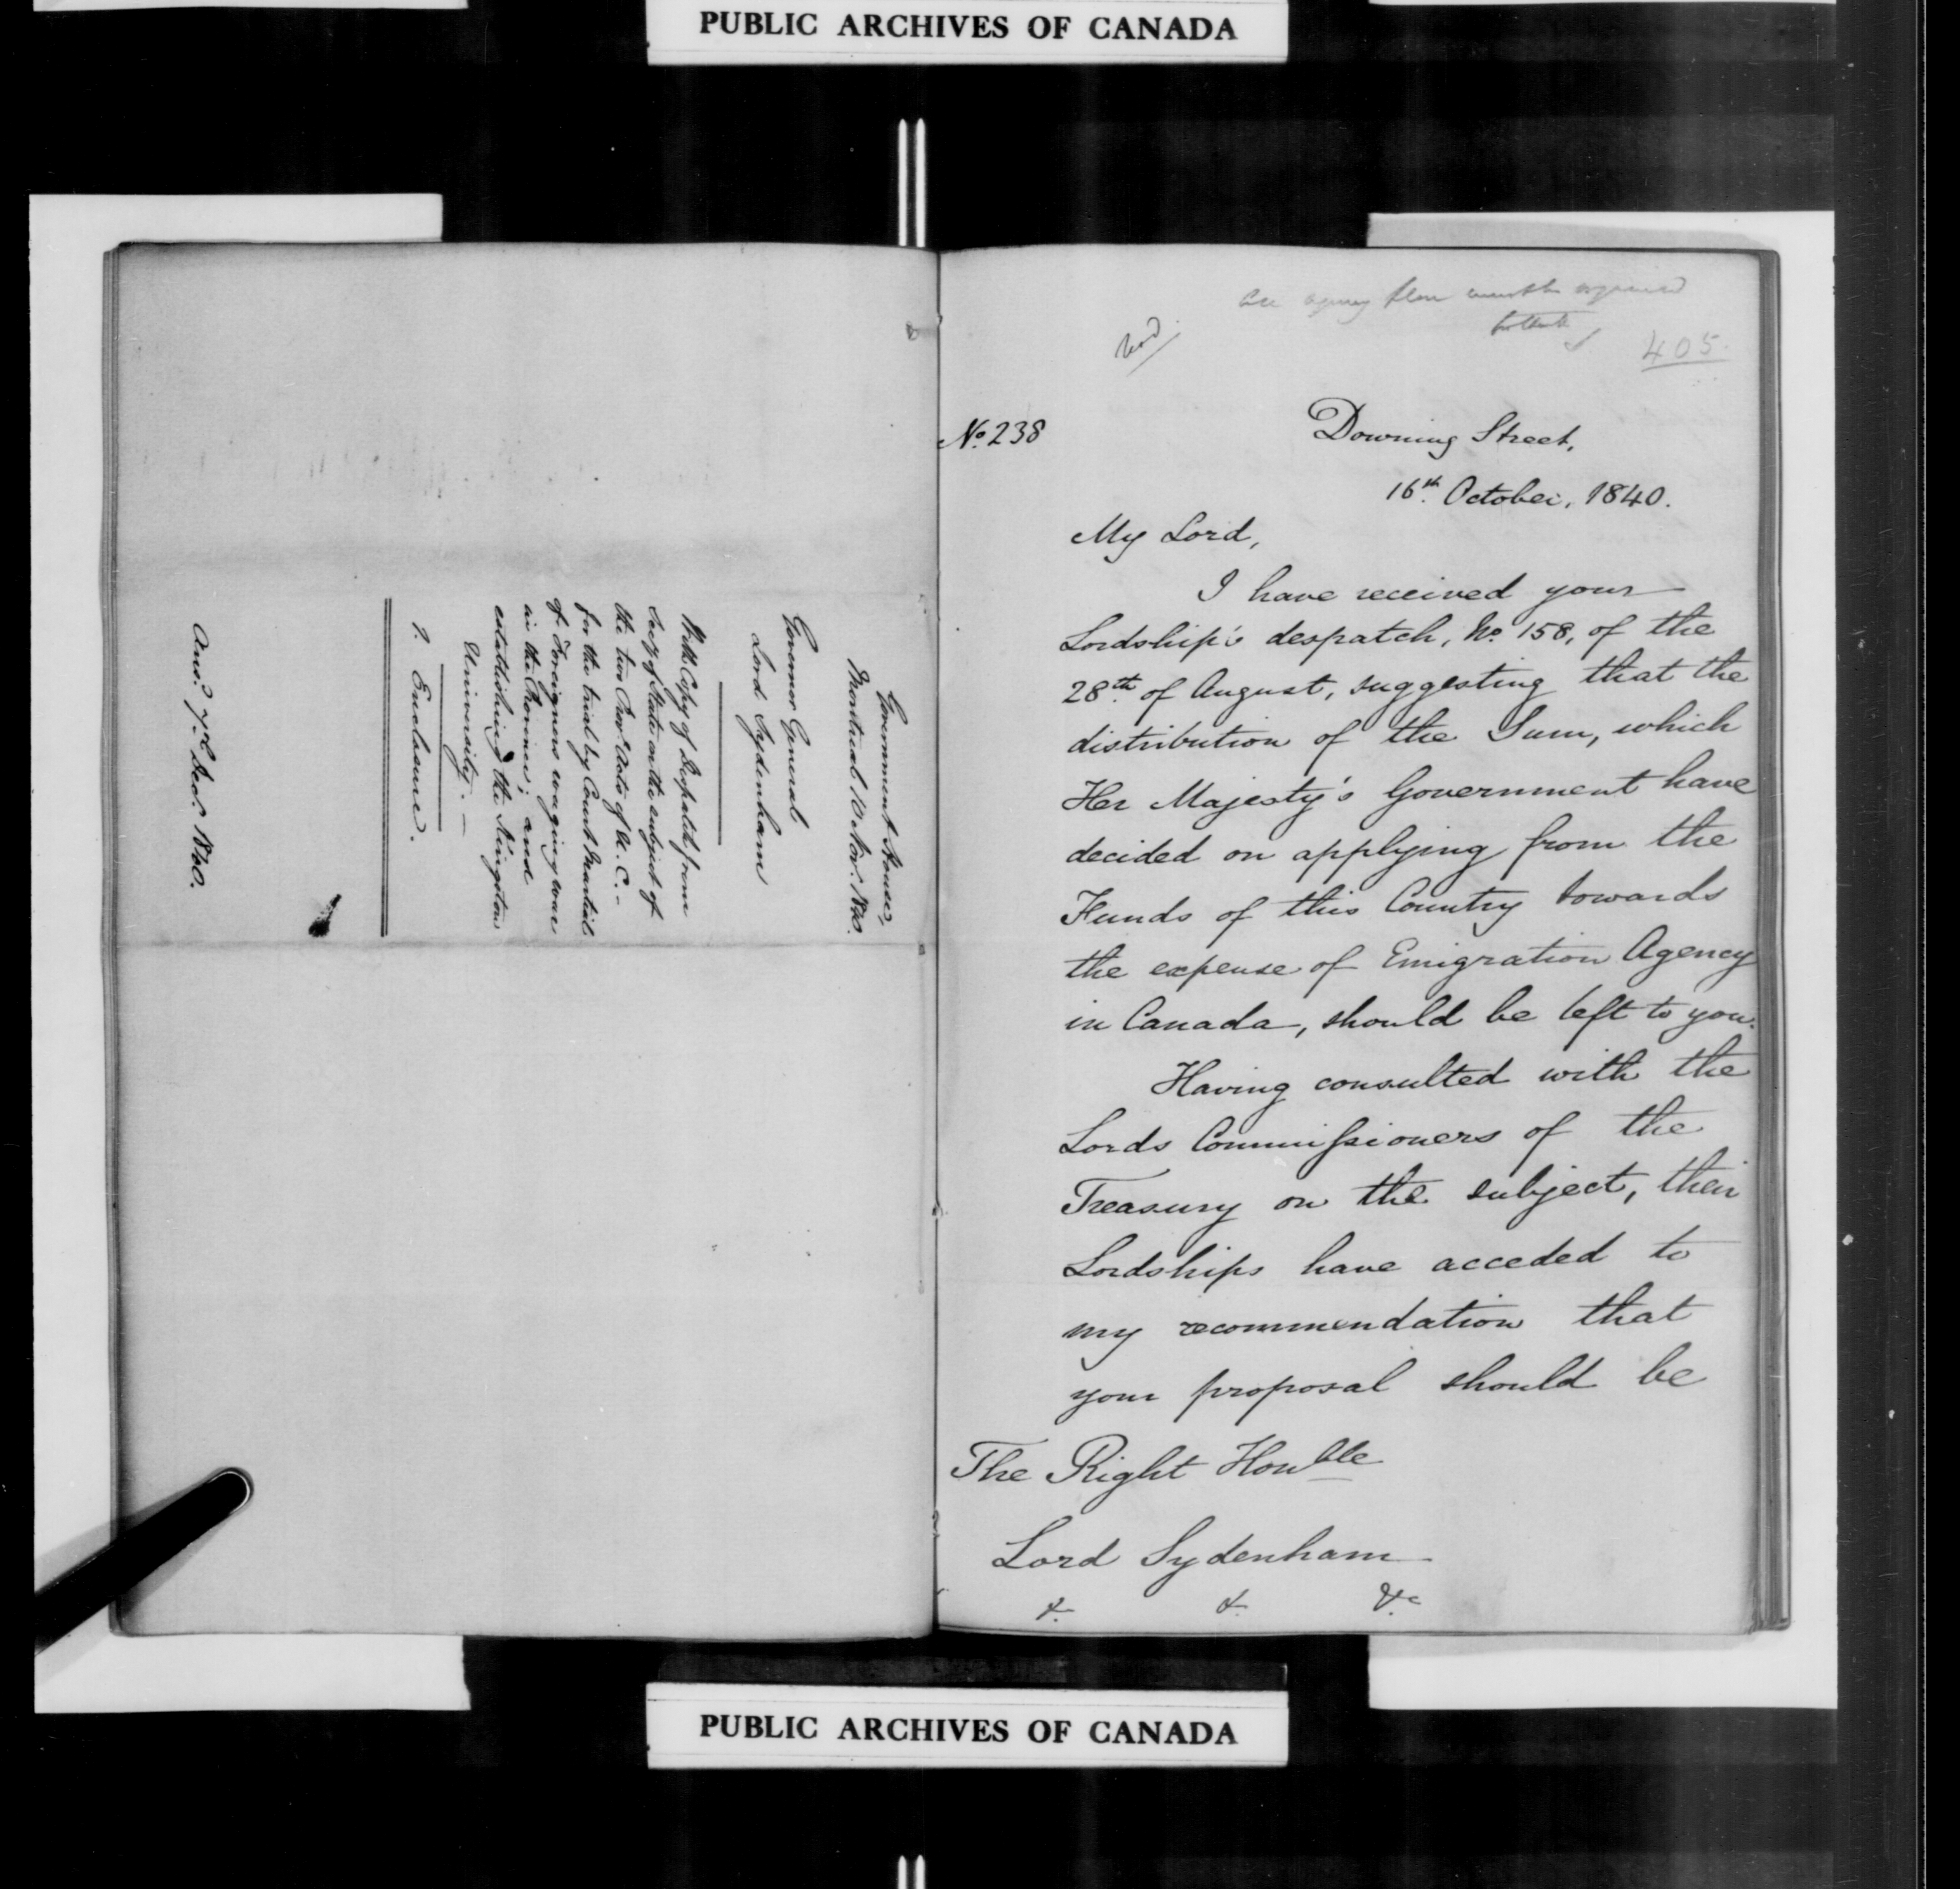 PUBLIC ARCHIVES OF CANADA
Government House,
Montreal 10 Nov. 1840.
Governor General
Lord Sydenham
With Copy of Despatch from
Secy of State on the subject of
the two Prov. Acts of U. C. –
for the trial by Court Martial
of Foreigners waging war
in the Province; and
establishing the Kingston
University. –
1. Enclosure.
Ans. 7th Dec. 1840.
405.
No. 238
Downing Street,
16th October, 1840.
My Lord,
I have received your
Lordship's despatch, No. 158, of the
28th of August, suggesting that the
distribution of the Sum, which
Her Majesty's Government have
decided on applying from the
Funds of this Country towards
the expense of Emigration Agency
in Canada, should be left to you.
Having consulted with the
Lords Commissioners of the
Treasury on the subject, their
Lordships have acceded to
my recommendation that
your proposal should be
The Right Honble
Lord Sydenham
&. &. &c
PUBLIC ARCHIVES OF CANADA